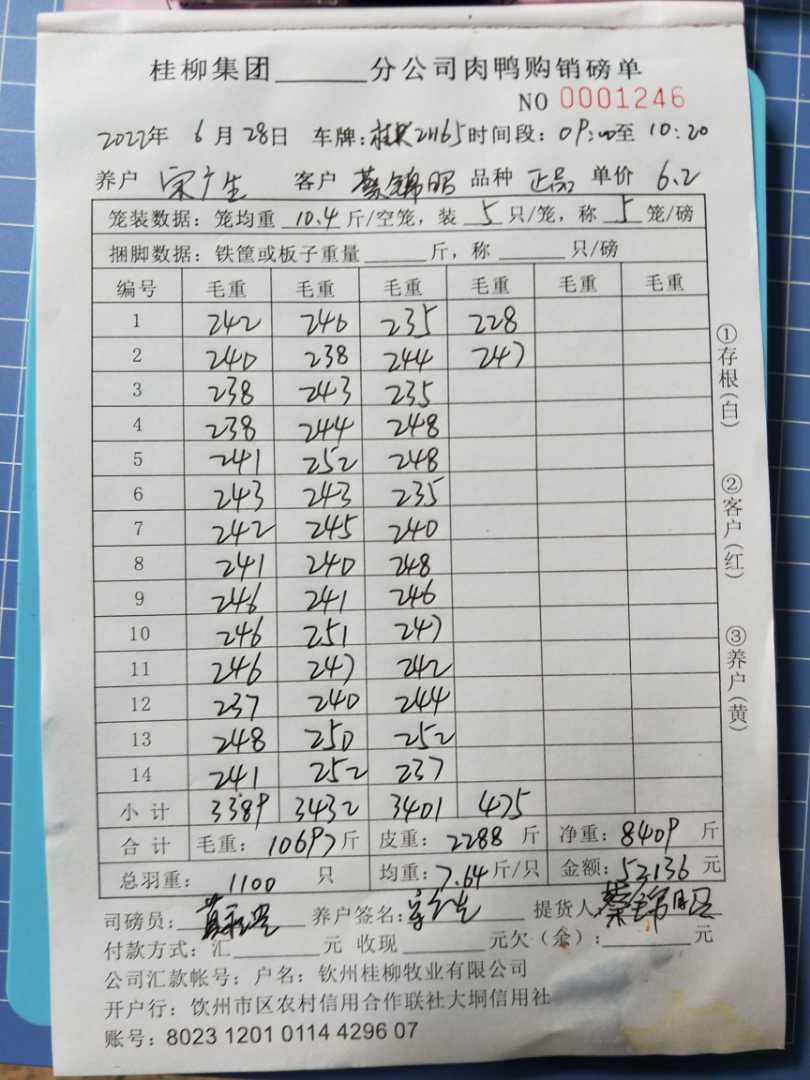 桂柳集团______分公司肉鸭购销磅单
NO 0001246
2022年 6月28日 车牌:桂 2H65 时间段: 09:00至 10:20
养户 宋广生 客户 蔡锦昭 品种 正品 单价 6.2
笼装数据: 笼均重 10.4 斤/空笼, 装 5 只/笼, 称 5 笼/磅
捆脚数据: 铁筐或板子重量______斤, 称______只/磅
编号 毛重 毛重 毛重 毛重 毛重 毛重
1 242 246 235 228
2 240 238 244 247
3 238 243 235
4 238 244 248
5 241 252 248
6 243 243 235
7 242 245 240
8 241 240 248
9 246 241 246
10 246 251 247
11 246 247 242
12 237 240 244
13 248 250 252
14 241 252 237
小计 3389 3432 3401 475
合计 毛重: 10697斤 皮重: 2288 斤 净重: 8409 斤
总羽重: 1100 只 均重: 7.64斤/只 金额: 52136 元
司磅员: 养户签名: 提货人 蔡锦昭
付款方式: 汇______元 收现______元欠(余):______元
公司汇款帐号: 户名: 钦州桂柳牧业有限公司
开户行: 钦州市区农村信用合作联社大垌信用社
账号: 8023 1201 0114 4296 07
①存根(白)
②客户(红)
③养户(黄)